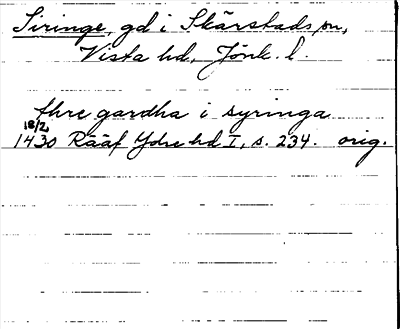 Siringe, gd i Skärstads sn,
Vista hd, Jönk. l.
thre gardha i syringa
18/2
1430 Rääf Ydre hd I, s. 234. orig.